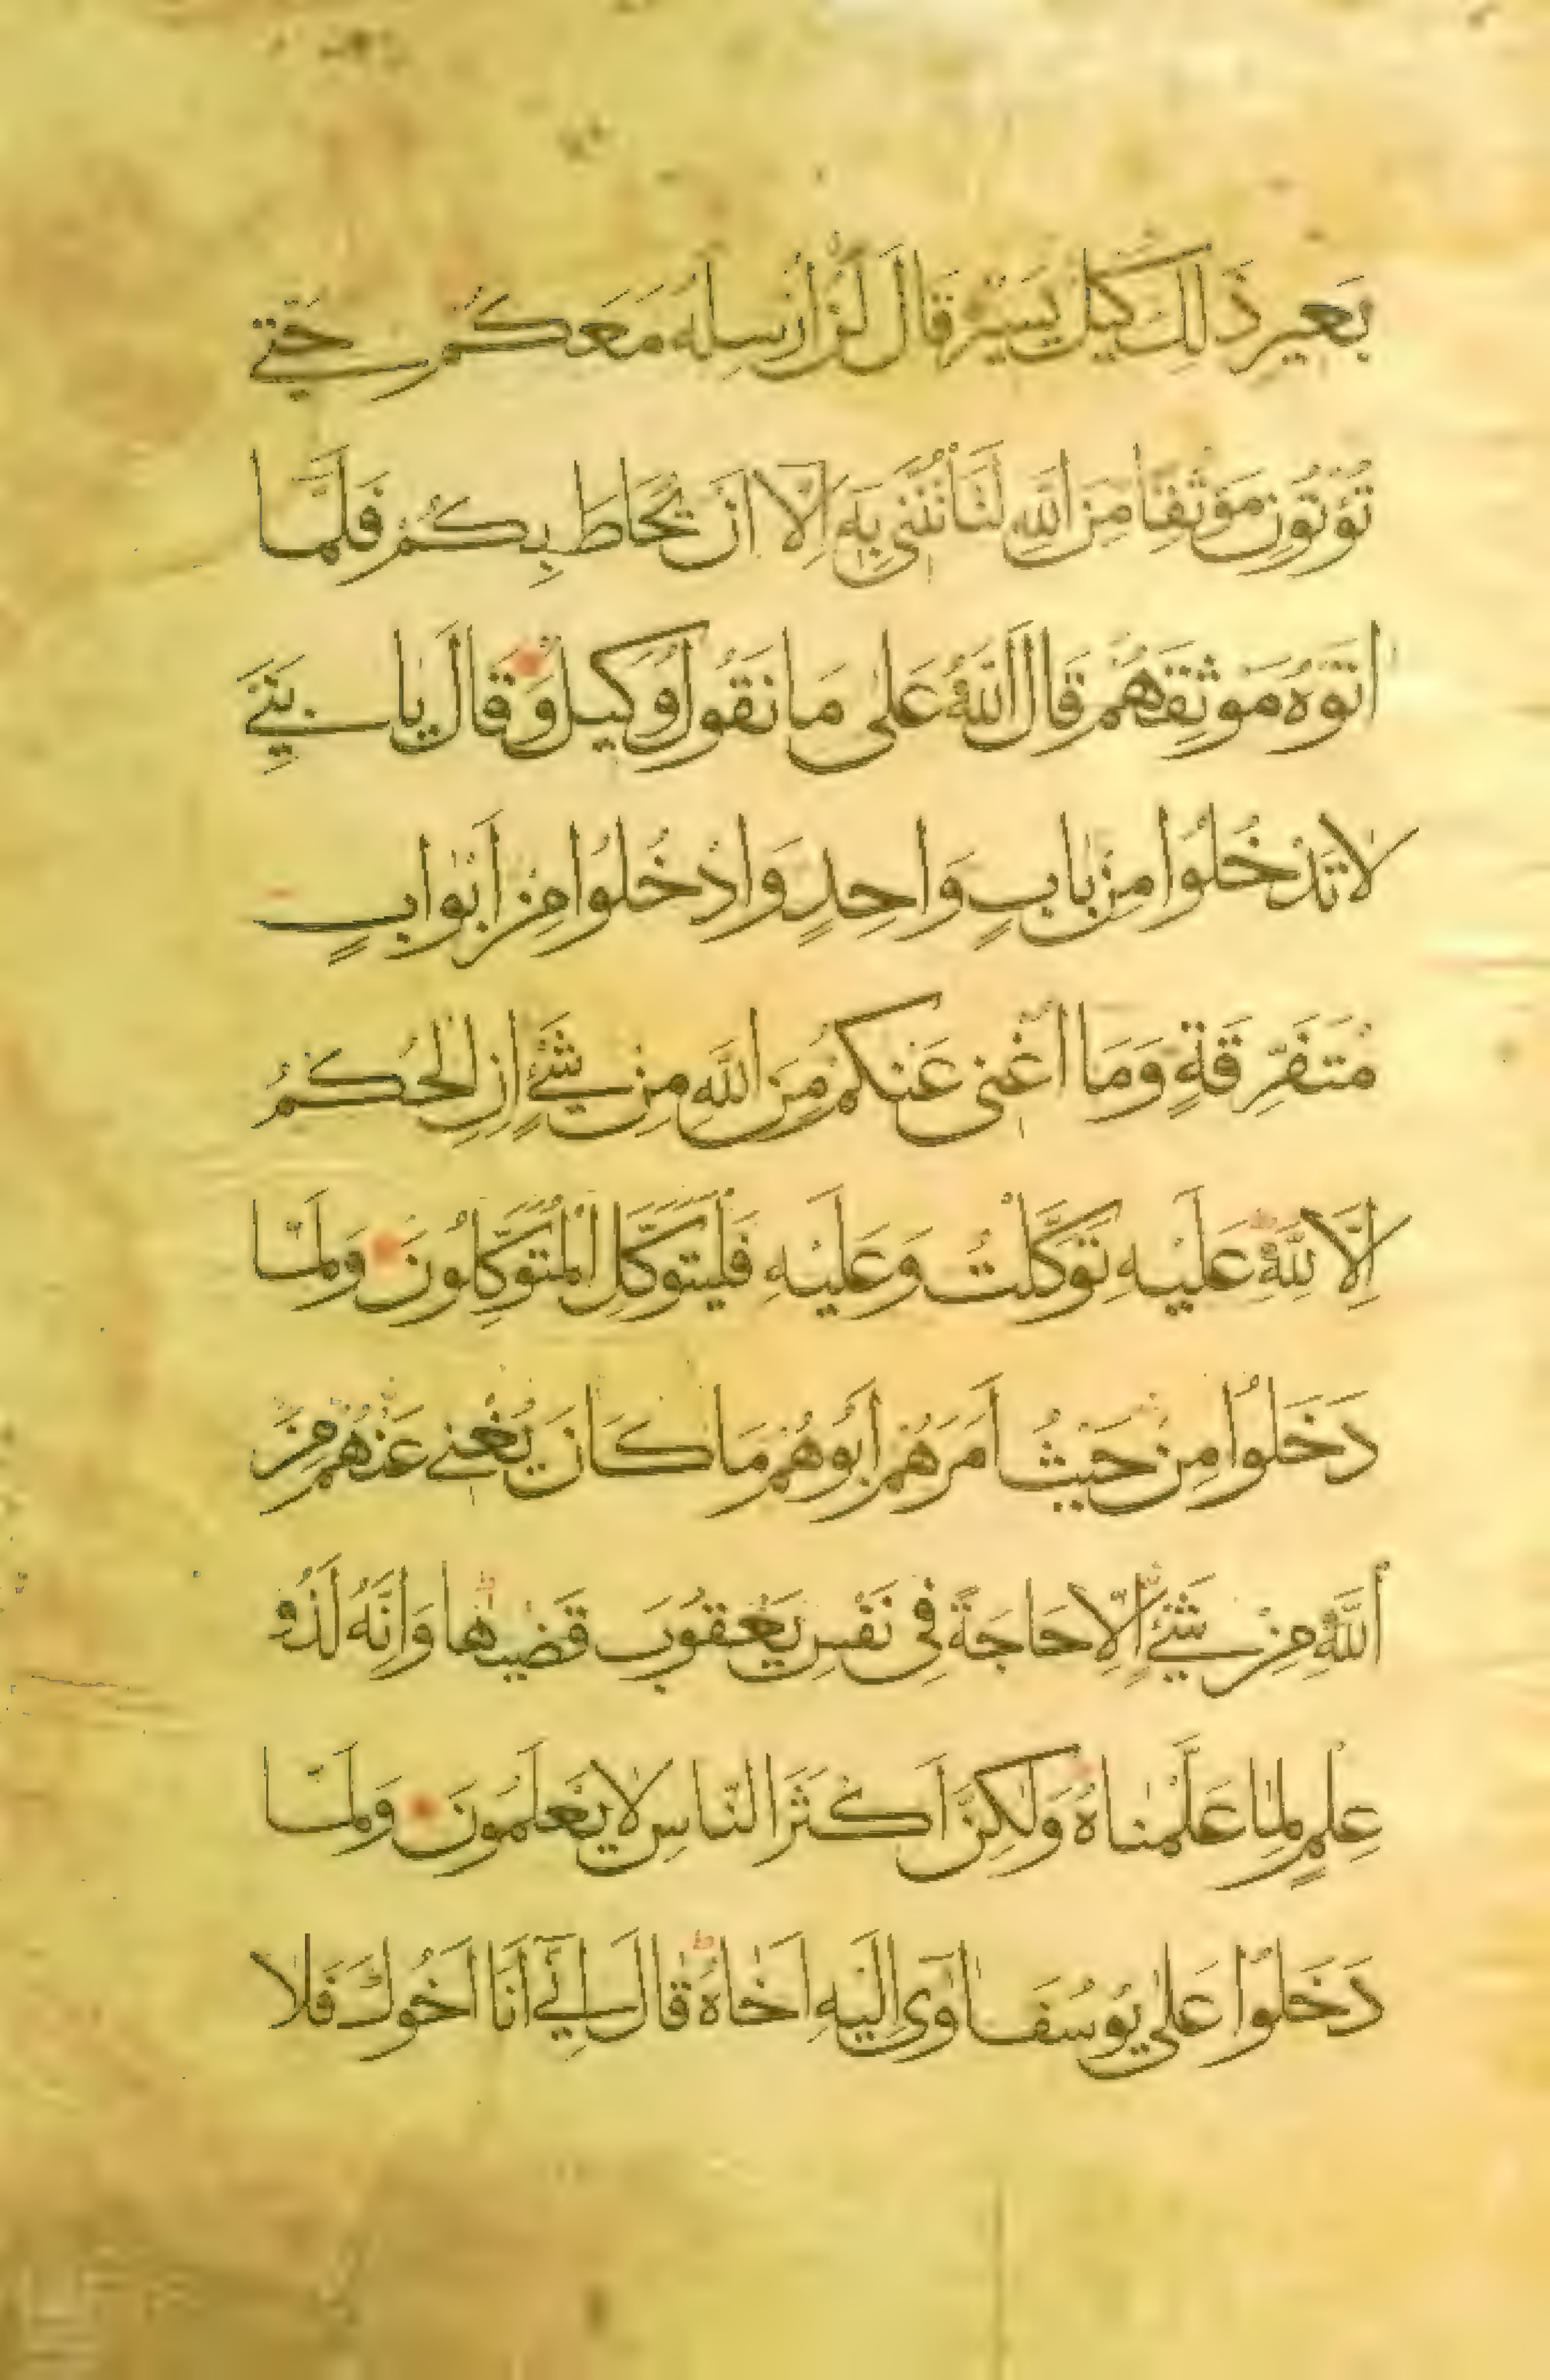 بَعيرٍ ذَلِكَ كَيْلٌ يَسيرٌ قَالَ لَنْ اُرْسِلَهُ مَعَكُمْ حَتّٰي
تُؤْتُونِ مَوْثِقًا مِنَ اللّٰهِ لَتَأْتُنَّنى بِهِ اِلَّا اَنْ يُحَاطَ بِكُمْ فَلَمَّا
اٰتَوْهُ مَوْثِقَهُمْ قَالَ اللّٰهُ عَلٰى مَا نَقُولُ وَكيلٌ وَقَالَ يَا بَنِيَّ
لَا تَدْخُلُوا مِنْ بَابٍ وَاحِدٍ وَادْخُلُوا مِنْ اَبْوَابٍ
مُتَفَرِّقَةٍ وَمَا اُغْنى عَنْكُمْ مِنَ اللّٰهِ مِنْ شَيْءٍ اِنِ الْحُكْمُ
اِلَّا لِلّٰهِ عَلَيْهِ تَوَكَّلْتُ وَعَلَيْهِ فَلْيَتَوَكَّلِ الْمُتَوَكِّلُونَ وَلَمَّا
دَخَلُوا مِنْ حَيْثُ اَمَرَهُمْ اَبُوهُمْ مَا كَانَ يُغْني عَنْهُمْ مِنَ
اللّٰهِ مِنْ شَيْءٍ اِلَّا حَاجَةً فِى نَفْسِ يَعْقُوبَ قَضٰيهَا وَاِنَّهُ لَذُو
عِلْمٍ لِمَا عَلَّمْنَاهُ وَلٰكِنَّ اَكْثَرَ النَّاسِ لَا يَعْلَمُونَ وَلَمَّا
دَخَلُوا عَلٰى يُوسُفَ اٰوٰى اِلَيْهِ اَخَاهُ قَالَ اِنّي اَنَا اَخُوكَ فَلَا